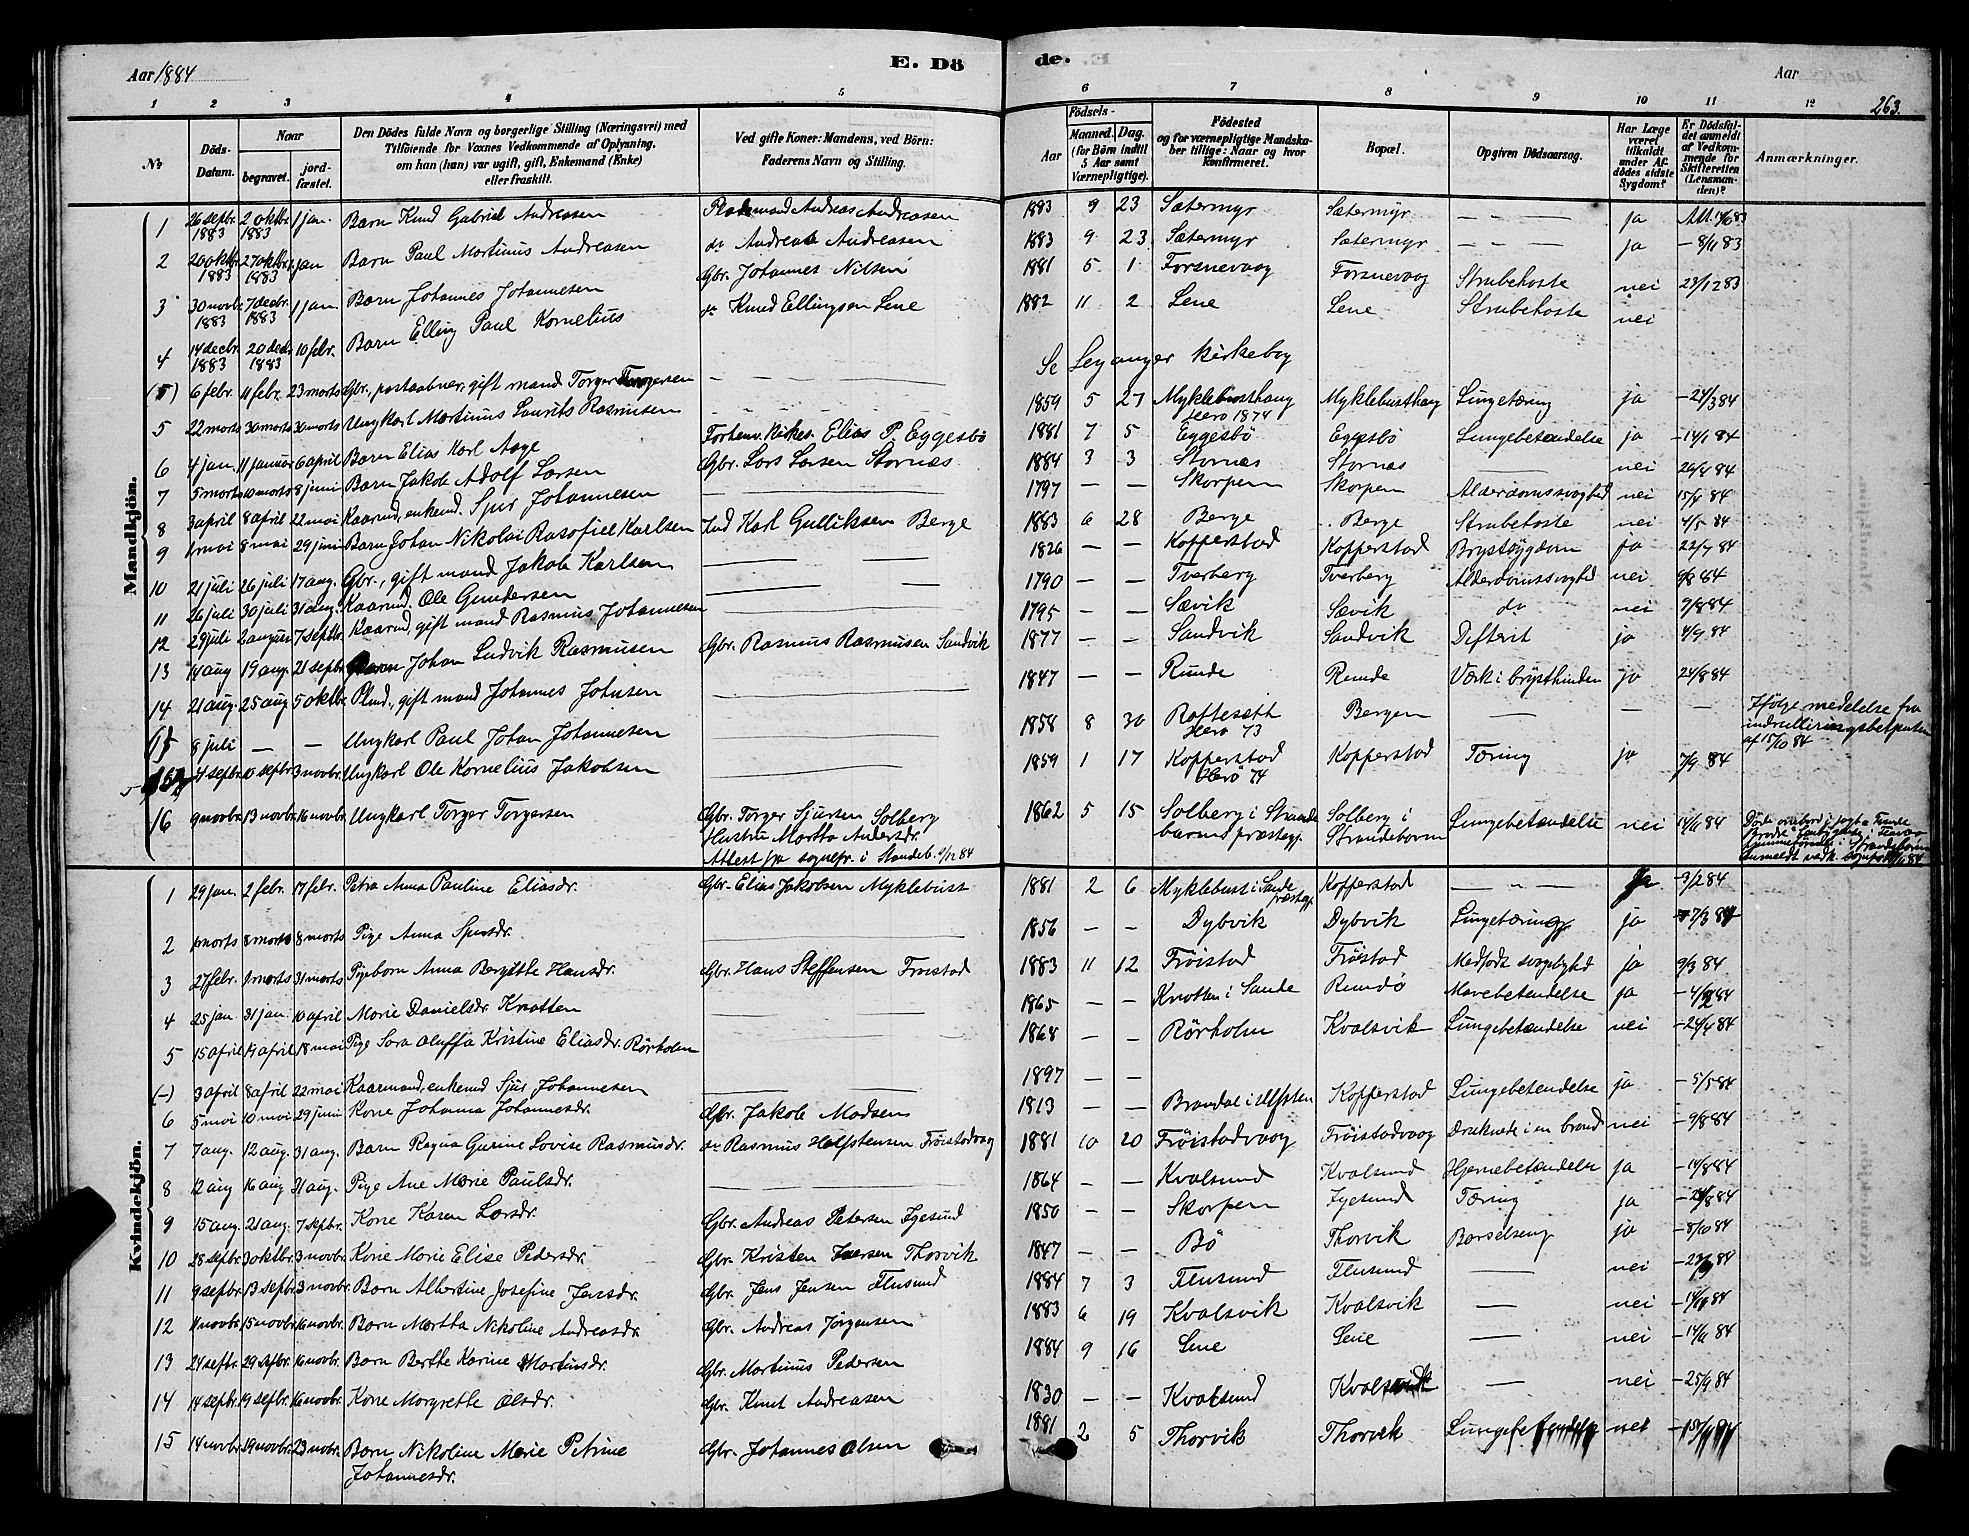 Aar 1884
E. Dö
de.
Aar
263.
1 2 3 4 5 6 7 8 9 10 11 12
No
Döds-Datum.
Naar
begravet.
jord-fæstet.
Den Dödes fulde Navn og borgerlige Stilling (Næringsvei) med
Tilföiende for Voxnes Vedkommende af Oplysning,
om han (hun) var ugift, gift, Enkemand (Enke)
eller fraskilt.
Ved gifte Koner: Mandens, ved Börn:
Faderens Navn og Stilling.
Födsels-
Aar
Maaned. Dag.
(for Börn indtil
5 Aar samt
Værnepligtige).
Födested
og for værnepligtige Mandska-
ber tillige: Naar og hvor
Konfirmeret.
Bopæl.
Opgiven Dödsaarsag.
Har Læge
været
tilkaldt
under Af-
dödes sidste
Sygdom?
Er Dödsfal-
det anmeldt
af Vedkom-
mende for
Skifteretten
(Lensman-
den)?
Anmærkninger.
Mandkjön.
1 26 septbr. 1883 2 oktbr. 1883 1 jan. Barn Knud Gabriel Andreasen Andreas Andreasen 1883 9 23 Sætermyr Sætermyr — — — ja
2 20 oktbr. 1883 27 oktbr. 1883 1 jan Barn Paul Martinus Andreasen do Andreas Andreasen 1883 9 23 Sætermyr Sætermyr — — — ja — 8/11 83
3 30 novbr. 1883 7 decbr. 1883 1 jan. Barn Johannes Johannesen Gbr. Johannes Nilsen 1881 5 1 Forsnevaag Forsnevaag Strubehoste nei 23/12 83
4 14 decbr. 1883 20 decbr. 1883 10 febr. Barn Elling Paul Kornelius do Knud Ellingsen Lene 1882 11 2 Lene Lene Strubehoste nei
(5) 6 febr. 11 febr. 23 marts Gbr., postaabner, gift mand Torger Torgersen — Se Leganger kirkebog
5 22 marts 30 marts 30 marts Ungkarl Martinus Laurits Rasmusen — 1859 5 27 Myklebusthaug Herø 1874 Myklebusthaug Lungetæring ja — 24/3 84
6 4 jan. 11 januar 6 april Barn Elias Karl Aage Forhenv. kirkes. Elias P. Eggesbö 1881 7 5 Eggesbö Eggesbö Lungebetændelse ja — 14/1 84
7 5 marts 10 marts 8 juni Barn Jakob Adolf Larsen Gbr. Lars Larsen Stornæs 1884 3 3 Stornæs Stornæs — nei 26/4 84
8 3 april 8 april 22 mai Kaarmd., enkemd. Sjur Johannesen — 1797 — — Skorpen Skorpen Alderdomssvaghed nei 15/4 84
9 1 mai 8 mai 29 juni Barn Johan Nikolai Rasofiel Karlsen Ind. Karl Gulliksen Berge 1883 6 28 Berge Berge Strubehoste nei 4/5 84
10 21 juli 26 juli 17 aug. Gbr., gift mand Jakob Karlsen — 1826 — — Kopperstad Kopperstad Brystsygdom ja 22/7 84
11 26 juli 30 juli 31 aug. Kaarmd. Ole Gundersen — 1790 — — Tverberg Tverberg Alderdomssvaghed nei 9/8 84
12 29 juli 2 august 7 septbr. Kaarmd., gift mand Rasmus Johannesen — 1795 — — Sævik Sævik do nei 9/8 84
13 14 aug 19 aug. 21 septbr. Barn Johan Ludvik Rasmusen Gbr. Rasmus Rasmusen Sandvik 1877 — — Sandvik Sandvik Difterit ja 4/9 84
14 21 aug. 25 aug 5 oktbr. Plmd., gift mand Johannes Johnsen — 1847 — — Runde Runde Værk i brysthinden ja 24/8 84
8 juli — — Ungkarl Paul Johan Johannesen — 1858 8 30 Roftesæth Herø 73 Bergen — — — Ifølge medelelse fra
indrulleringsbetjenten
af 15/10 84
15 4 septbr. 10 septbr. 3 novbr. Ungkarl Ole Kornelius Jakobsen — 1859 1 17 Kopperstad Herø 74 Kopperstad Tæring ja 7/9 84
16 9 novbr. 13 novbr. 16 novbr. Ungkarl Torger Torgersen Gbr. Torger Sjursen Solberg
Hustru Martha Andersdr.
Attest fra sognepr. i Standeb. 1862 5 15 Solberg i Strande
barms præstegj. Solberg i
Strandebarm Lungebetændelse nei 14/11 84 Døde ombord i
Kvindekjön.
1 29 jan. 2 febr. 17 febr. Petra Anna Pauline Eliasdr. Gbr. Elias Jakobsen Myklebust 1881 2 6 Myklebust i Sande præstegj. Kopperstad — „ — Ja — 3/2 84
2 1 marts 8 marts 8 marts Pige Anna Sjursdr. — 1856 — — Dybvik Dybvik Lungetæring ja — 7/3 84
3 27 febr. 9 marts 31 marts Pigebarn Anna Bergitthe Hansdr. Gbr. Hans Steffensen Frøistad 1883 11 12 Frøistad Frøistad Medfødt svaghed ja 9/3 84
4 25 jan 31 jan. 10 april Marie Danielsdr. Knotten — 1865 — — Knotten i Sande Rundø Mavebetændelse ja — 4/2 84
5 15 april 19 april 18 mai Pige Sara Oluffa Kristine Eliasdr. Rørholm — 1868 — — Rørholm Kvalsvik Lungebetændelse nei — 24/4 84
(–) 3 april 8 april 22 mai Kaarmand, enkemd Sjur Johannesen — 1897 — —
6 5 mai 10 mai 29 juni Kone Johanna Johannesdr. Gbr. Jakob Madsen 1813 — — Brandal i Ulfsten Kopperstad Lungebetendelse ja — 5/5 84
7 7 aug. 12 aug. 31 aug. Barn Ragna Gurine Lovise Rasmusdr. do Rasmus Halfstensen Frøistadvaag 1881 10 20 Frøistadvaag Frøistadvaag Druknede i en brønd nei — 9/8 84
8 12 aug 16 aug 31 aug. Pige Ane Marie Paulsdr. — 1864 — — Kvalsund Kvalsund Hjernebetændelse ja — 14/8 84
9 15 aug. 21 aug. 7 septbr. Kone Karen Larsdr. Gbr. Andreas Petersen Igesund 1850 — — Skorpen Igesund Tæring ja — 24/8 84
10 28 septbr. 3 oktbr. 3 novbr. Kone Marie Elise Pedersdr. Gbr. Kristen Iversen Thorvik 1847 — — Bö Thorvik Barselseng ja — 8/10 84
11 9 septbr. 13 septbr. 3 novbr. Barn Albertine Josefine Jensdr. Gbr. Jens Jensen Flusund 1884 7 3 Flusund Flusund — nei — 23/9 84
12 11 novbr. 15 novbr. 16 novbr. Barn Martha Nikoline Andreasdr. Gbr. Andreas Jørgensen 1883 6 19 Kvalsvik Kvalsvik — nei — 14/11 84
13 24 septbr. 29 septbr. 16 novbr. Barn Berthe Karine Martinsdr. Gbr. Martinus Pedersen 1884 9 16 Lene Lene — nei — 14/11 84
14 14 septbr. 19 septbr. 16 novbr. Kone Margrethe Olsdr. Gbr. Knut Andreasen 1830 — — Kvalsund Kvalsvik — nei — 25/9 84
15 14 novbr. 19 novbr. 23 novbr. Barn Nikoline Marie Petrine
Johannesdr. Gbr. Johannes Olsen 1881 2 5 Thorvik Thorvik Lungebetændelse nei